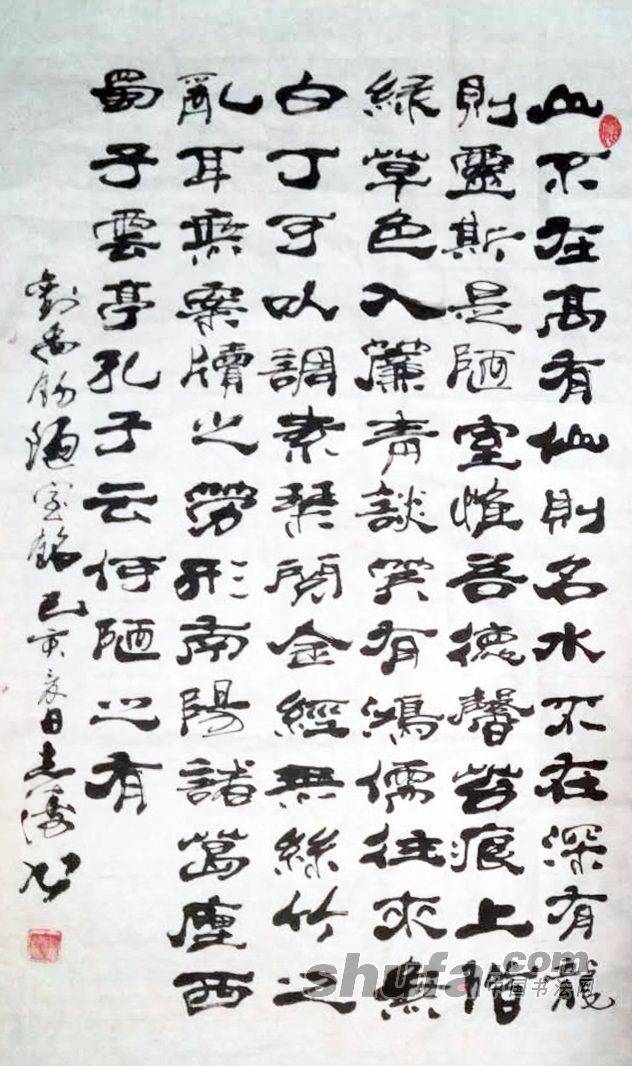 山不在高有仙則名水不在深有龍
則靈斯是陋室惟吾德馨苔痕上階
綠草色入簾青談笑有鴻儒往來無
白丁可以調素琴閱金經無絲竹之
亂耳無案牘之勞形南陽諸葛廬西
蜀子雲亭孔子云何陋之有
劉禹錫陋室銘己亥夏日志書
shufa.com
中国书法网